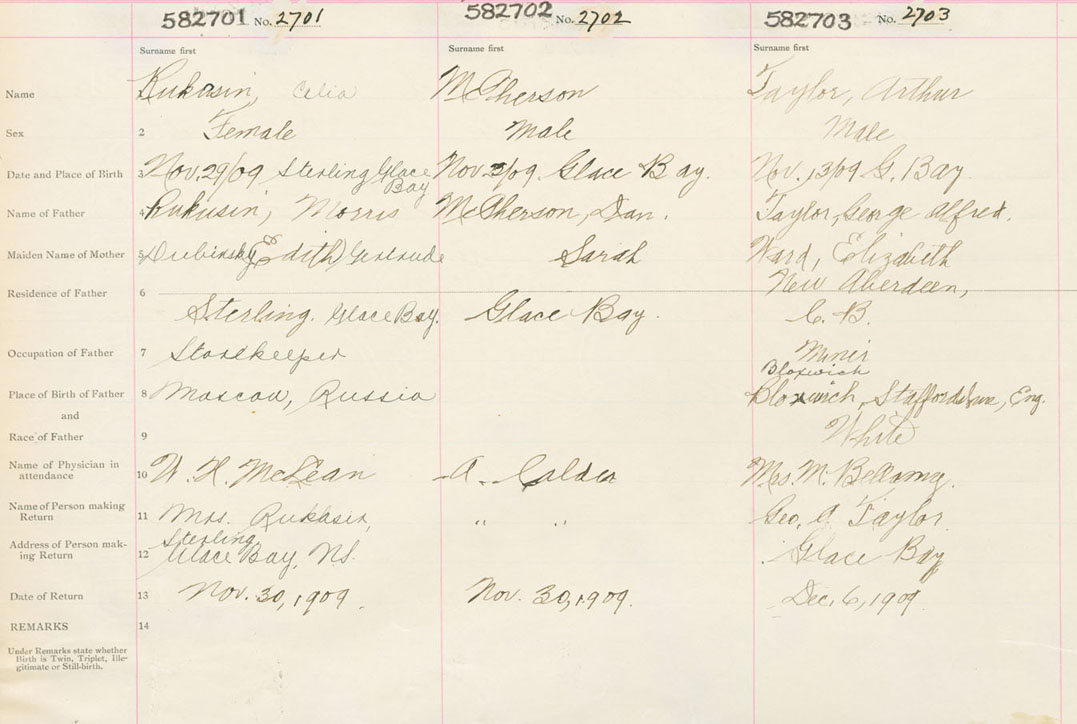 582701 No. 2701 582702 No. 2702 582703 No. 2703
Surname first Surname first Surname first
Name Rukasin, Celia McPherson Taylor, Arthur
Sex 2 Female Male Male
Date and Place of Birth 3 Nov. 29/09 Sterling Glace Bay Nov. 3/09. Glace Bay. Nov. 13/09 G. Bay.
Name of Father 4 Rukasin, Morris McPherson, Dan. Taylor, George Alfred.
Maiden Name of Mother 5 Dubinsky (Edith) Gertrude Sarah Ward, Elizabeth
Residence of Father 6 New Aberdeen,
Sterling. Glace Bay. Glace Bay. C. B.
Occupation of Father 7 Storekeeper Miner
Bloxwich
Place of Birth of Father 8 Moscow, Russia Bloxwich, Staffordshire, Eng.
and
Race of Father 9 White
Name of Physician in
attendance 10 W. H. McLean A. Calder Mrs. M. Bellamy.
Name of Person making
Return 11 Mrs. Rukasin, " " Geo. A. Taylor
Address of Person mak-
ing Return 12 Sterling
Glace Bay, NS. Glace Bay
Date of Return 13 Nov. 30, 1909. Nov. 30, 1909. Dec. 6, 1909
REMARKS 14
Under Remarks state whether
Birth is Twin, Triplet, Ille-
gitimate or Still-birth.